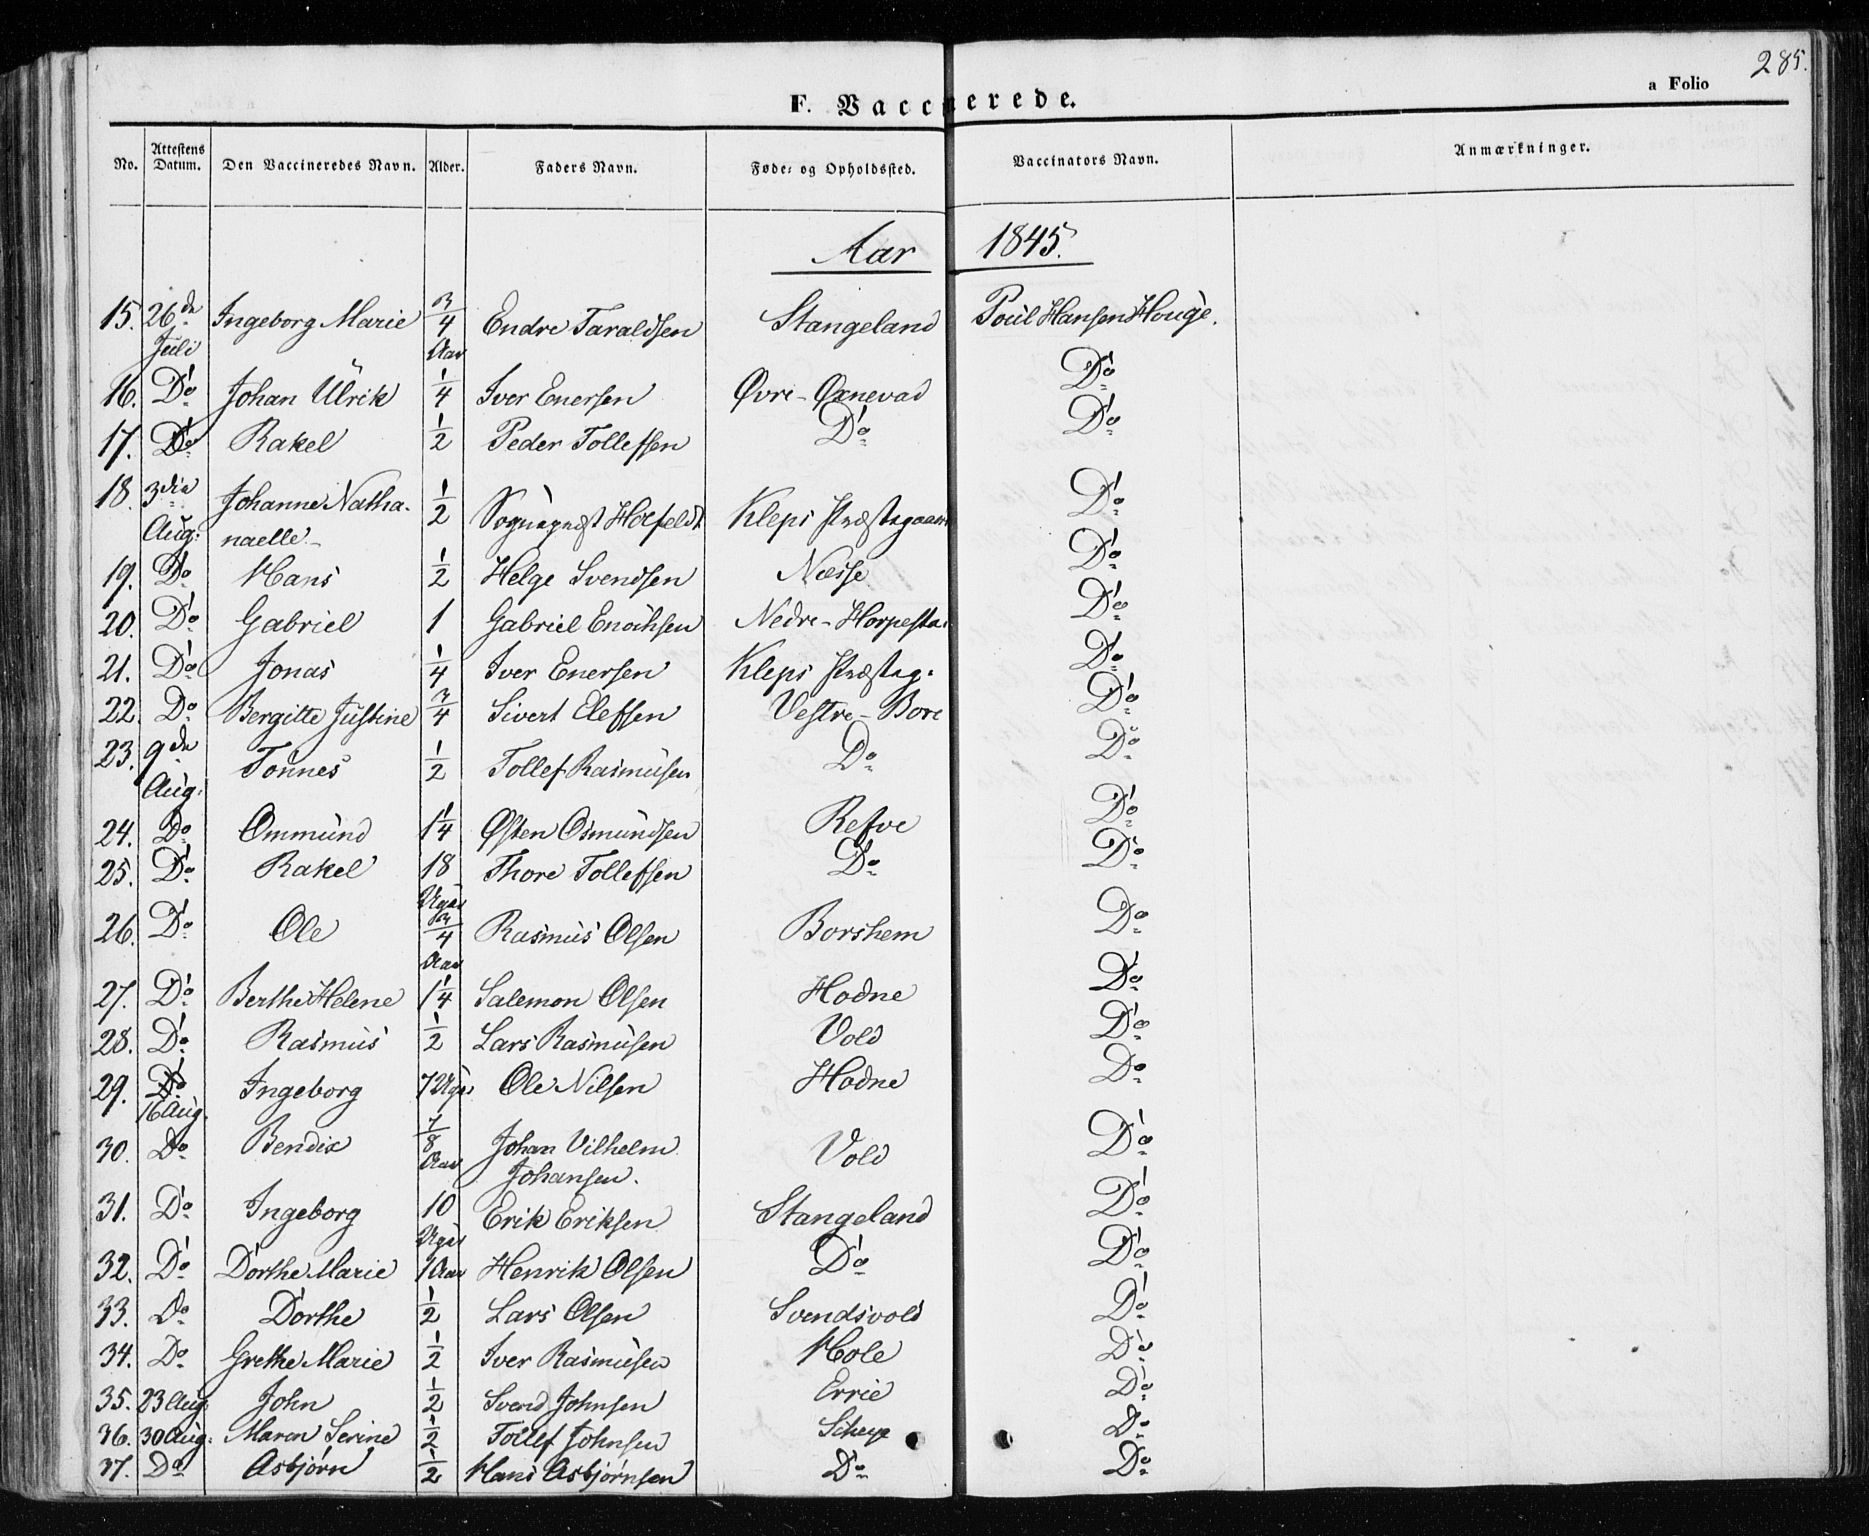 285.
a Folio
F. Vaccinerede.
No. Attestens Datum. Den Vaccineredes Navn. Alder. Faders Navn. Føde- og Opholdssted. Vaccinators Navn. Anmærkninger.
Aar 1845.
15. 26de Juli Ingeborg Marie 3/4 Aar Endre Taraldsen Stangeland Poul Hansen Houge.
16. Do Johan Ulrik 1/4 Iver Enersen Øvre-Øxnevad Do
17. Do Rakel 1/2 Peder Tollefsen Do Do
18. 3die Aug: Johanne Natha-
naelle 1/2 Sognepræst Kleps Præstegaard Do
19. Do Hans 1/2 Helge Svendsen Næsse Do
20. Do Gabriel 1 Gabriel Enochsen Nedre-Horpesta Do
21. Do Jonas 1/4 Iver Enersen Kleps Præsteg. Do
22. Do Bergitte Justine 3/4 Sivert Elefsen Vestre-Bore Do
23. 9de Aug. Tönnes 1/2 Tollef Rasmusen Do Do
24. Do Ommund 1 1/4 Østen Osmundsen Refve Do
25. Do Rakel 18 Uger Thore Tollefsen Do Do
26. Do Ole 3/4 Aar Rasmus Olsen Borshem Do
27. Do Berthe Helene 1 1/4 Salemon Olsen Hodne Do
28. Do Rasmus 1/2 Lars Rasmusen Vold Do
29. Do 16 Aug. Ingeborg 7 Uger Ole Nilsen Hodne Do
30. Do Bendix 7/8 Aar Johan Vilhelm
Johansen. Vold Do
31. Do Ingeborg 10 Uger Erik Eriksen Stangeland Do
32. Do Dorthe Marie 1 Aar Henrik Olsen Do Do
33. Do Dorthe 1/2 Lars Olsen Svendsvold Do
34. Do Grethe Marie 1/2 Iver Rasmusen Hole Do
35. 23 Aug. John 1/2 Svend Johnsen Errie Do
36. 30 Aug. Maren Serine 1/2 Tollef Johnsen Do
37. Do Asbjørn 1/2 Hans Asbjørnsen Do Do